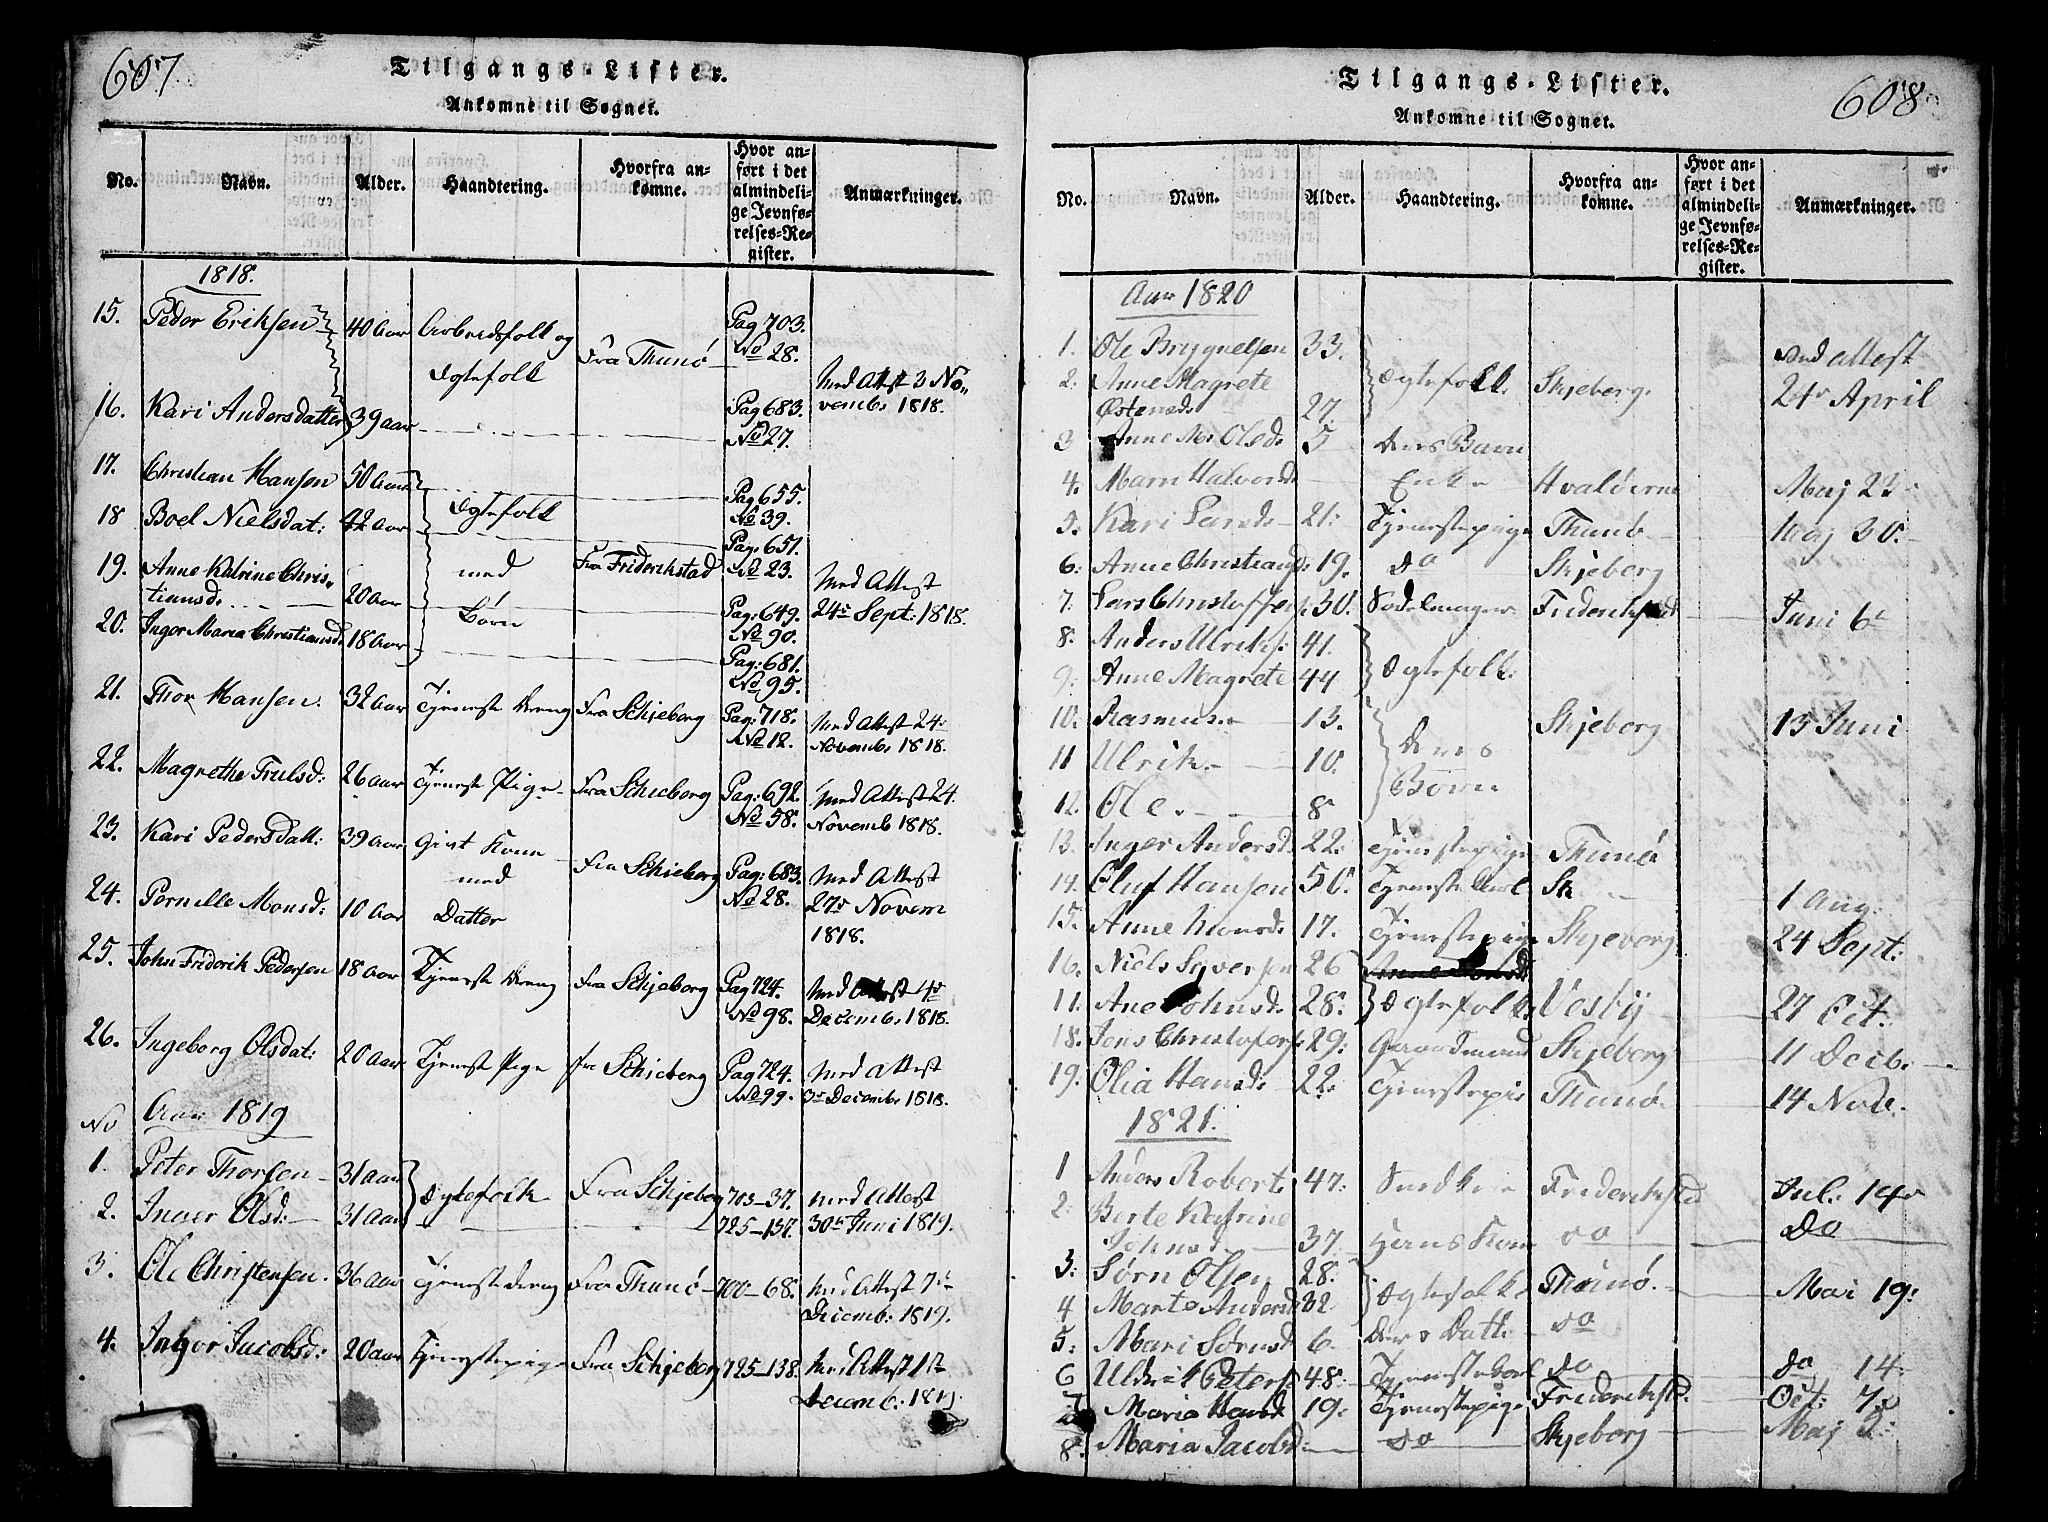 607
Tilgangs-Lister.
Ankomne til Sognet.
No. Navn. Alder. Haandtering. Hvorfra ankomne. Hvor anført i det almindelige Jevnførelses-Register. Anmærkninger.
1818.
15. Peder Eriksen 40 Aar Arbeidsfolk og Ægtefolk Fra Thunö Pag 703. No 28. Med Attest 3 Novemb. 1818.
16. Kari Andersdatter 39 aar Pag 683. No 27.
17. Christian Hansen 50 Aar Ægtefolk Pag 655. No 39.
18 Boel Nielsdat: 42 Aar med Pag. 651. No 23.
19. Anne Katrine Christiansd. 20 Aar Børn Fra Friderikstad Pag: 649. No 90. Med Attest 24de Sept: 1818.
20. Inger Maria Christiansd. 18 Aar Pag: 681. No 95.
21. Thor Hansen. 32 Aar Tjeneste Dreng Fra Schjeberg Pag: 718. No 12. Med Attest 24: Novemb. 1818.
22. Magrethe Trulsd: 26 aar Tjeneste Pige Fra Schieberg Pag: 692. No 58. Med Attest 24. Novemb 1818.
23. Kari Pedersdatt: 39 Aar Gift Kone med Fra Schieberg Pag: 683. No 28. Med Attest 27de Novem 1818.
24. Pernille Monsd: 10 Aar Datter
25. John Friderik Pedersen 18 Aar Tjeneste Dreng Fra Schjeberg Pag 724. No 98. Med Attest 4de Decemb. 1818.
26. Ingeborg Olsdat: 20 Aar Tjeneste Pige fra Schieberg Pag 724. No 99. Med Attest 3de Decemb. 1818.
No Aar 1819
1. Peter Thorsen 31 aar Ægtefolk Fra Schjeberg 703-37. med Attest
2. Inger Olsd: 31 Aar 725-137. 30te Juni 1819.
3. Ole Christensen. 36 Aar Tjeneste dreng Fra Thunö 700-68. Med Attest 7de Decemb: 1819.
4. Inger Jacobsd: 20 aar Tjenestepige Fra Schjeberg 725-138. Med Attest 1te Decemb: 1819
608
Tilgangs-Lister.
Ankomne til Sognet.
No. Navn. Alder. Haandtering. Hvorfra ankomne. Hvor anført i det almindelige Jevnførelses-Register. Anmærkninger.
Aar 1820
1. Ole Brynnelsen 33. Ægtefolk Skjeberg. Med attest
2. Anne Magrete Østensd. 27. 24de April
3 Anne M. Olsd. 5 Deres Barn
4. Maren Halvorsd. Enke Hvalöerne Maj 23
5. Kari Larsd. 21. Tjenestepige Thunö Maj 30.
6: Anne Christiansd: 19. do Skjeberg
7. Lars Christoffers. 30. Frideriksstad Juni 6te
8. Anders Ulriks: 41. Ægtefolk.
9: Anne Magrete 44
10. Rasmus. 13. Deres Skjeberg 13 Juni
11 Ulrik. 10. Børn
12. Ole. 8
13. Inger Andersd. 22. Tjenestepige Thunö
14. Oluf Hansen 50. Tjeneste Karl Sk 1 Aug:
15. Anne Monsd. 17. Tjenestepige Skjeberg 24 Sept:
16. Niels Syversen 26
11. Ane Johnsd. 28. Ægtefolk Vesby 27 Oct.
18. Jens Christofers. 29: Gaardmand Skjeberg 11 Decb.
19. Olia Hansd. 22. Tjenestepig Thunö 14 Nov.
1821.
1 Anders Roberts 47: Frideriksstad Jul: 14de
2: Berte Katrine Johnsd. 37. Hans Kone do Do
3: Sørn Olsen 28. Ægtefolk Thunö. Mai 19:
4 Marte Andersd. 32
5: Mari Sørnsd 6. Deres Datt. do
6 Uldrik Peters. 48: Tjenestekarl do do 14
7 Maria Hansd 19: Tjenestepige Frideriksst. Oct: 7de
8. Maria Jacobsd: do Skjeberg Maj 2: